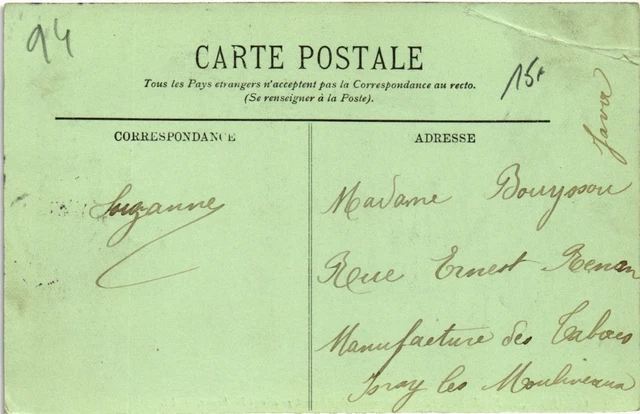 94
CARTE POSTALE
Tous les Pays etrangers n'acceptent pas la Correspondance au recto.
(Se renseigner à la Poste).
15f
CORRESPONDANCE
ADRESSE
Java
Suzanne
Madame Bouyssou
Rue Ernest Renan
Manufacture des Tabacs
Issay les Moulineaux